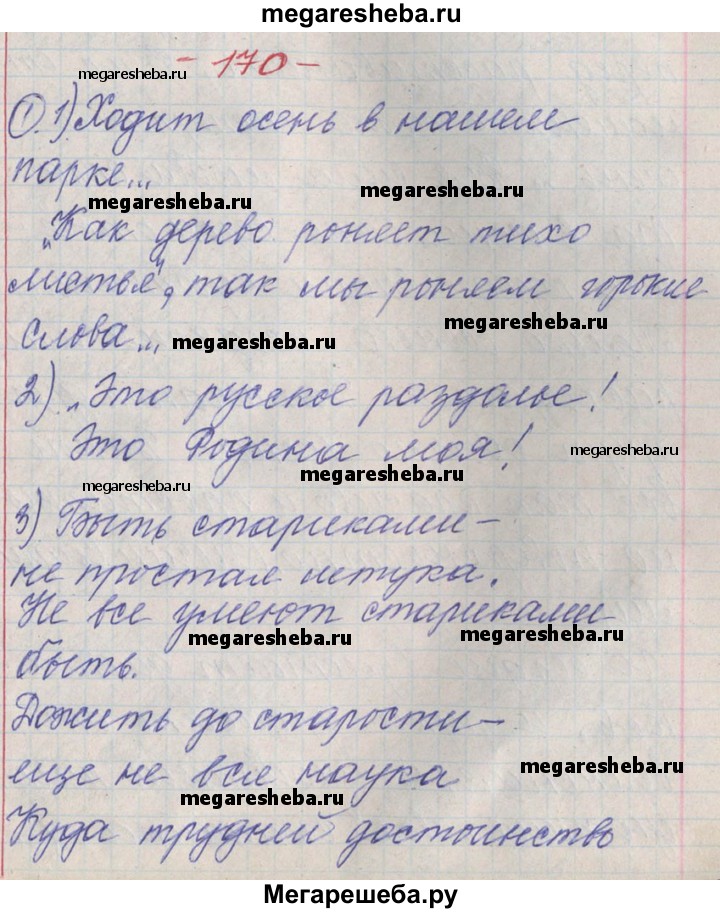 megaresheba.ru
- 170 -
megaresheba.ru
①. 1) Ходит осень в нашем
парке...
megaresheba.ru
megaresheba.ru
„Как дерево роняет тихо
листья“, так мы роняем горькие
megaresheba.ru
слова...
megaresheba.ru
2) „Это русское раздолье!
Это Родина моя!
megaresheba.ru
megaresheba.ru
megaresheba.ru
3) Быть стариками –
не простая штука.
Не все умеют стариками
megaresheba.ru
megaresheba.ru
быть.
Дожить до старости –
еще не вся наука
megaresheba.ru
megaresheba.ru
Куда трудней достоинство
Мегарешеба.ру